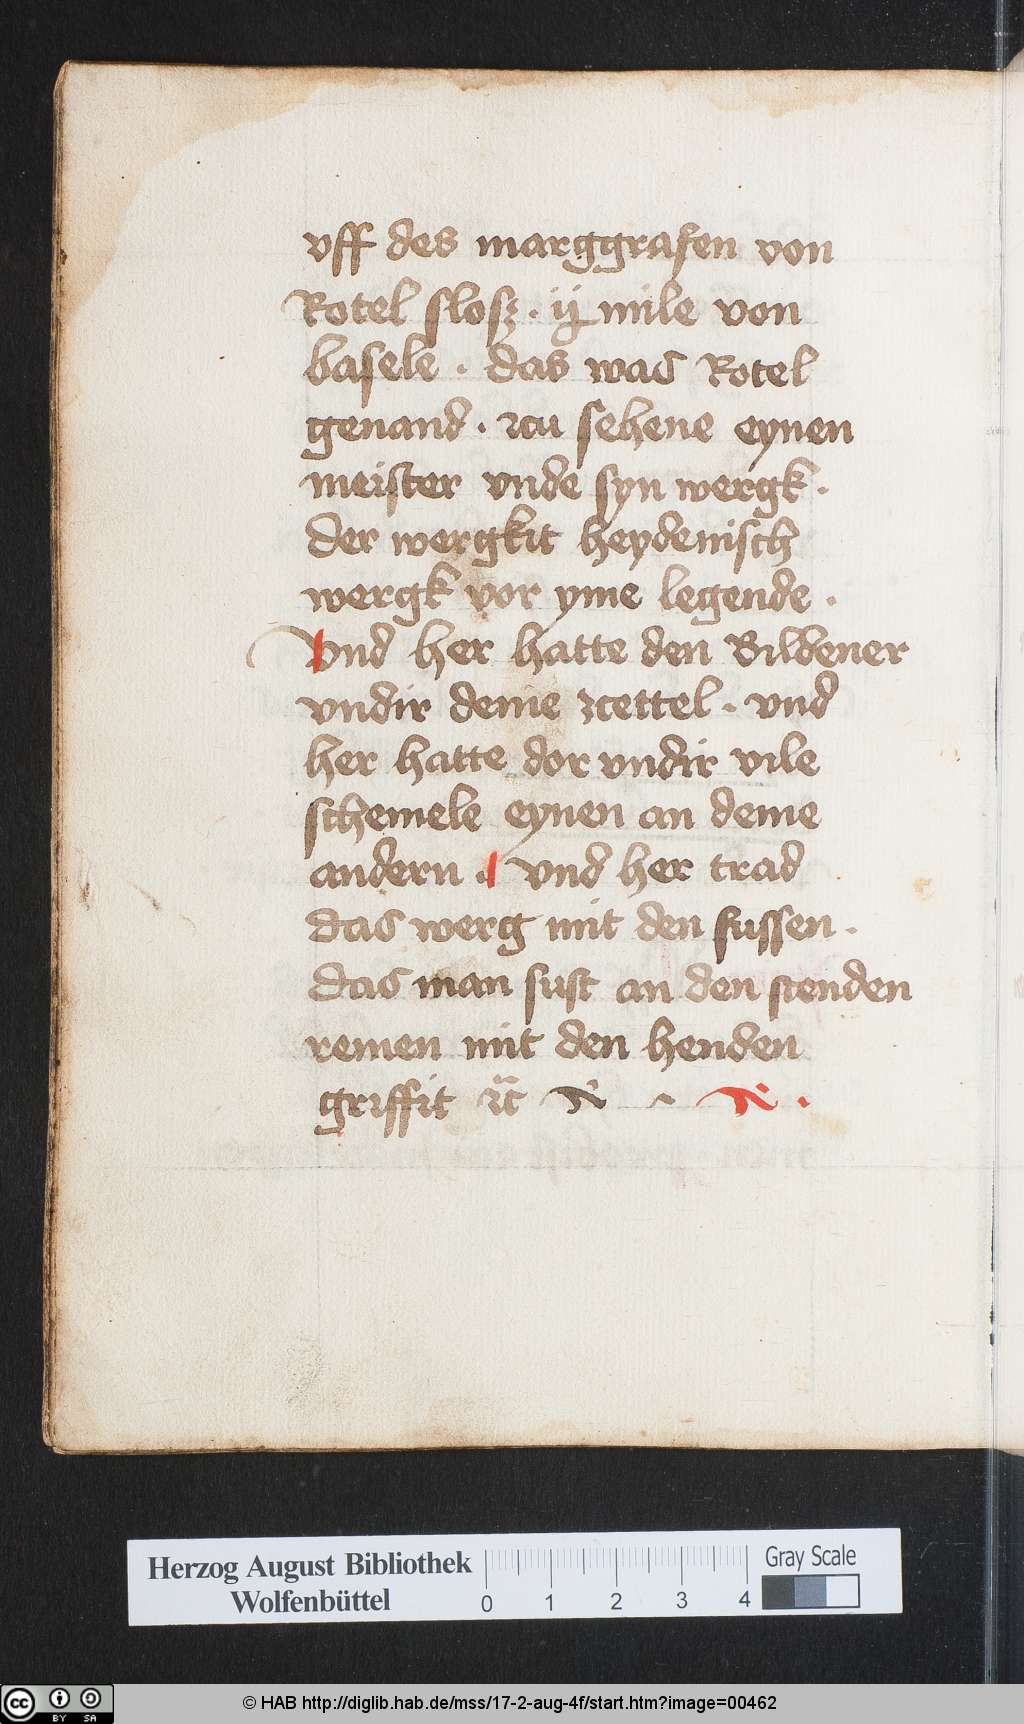 vff des marggrafen von
Rotel slosz · ij mile von
basele · das was Rotel
genand · zcu sehene eynen
meister vnde syn wergk ·
der wergkit heydenisch
wergk vor yme legende ·
Vnd her hatte den Bildener
vndir deme zcettel · vnd
her hatte dor vndir vile
schemele eynen an deme
andern · vnd her trad
das werg mit den fussen ·
das man sust an den stenden
remen mit den henden
griffit
Herzog August Bibliothek
Wolfenbüttel
0 1 2 3 4
Gray Scale
cc BY SA
© HAB http://diglib.hab.de/mss/17-2-aug-4f/start.htm?image=00462